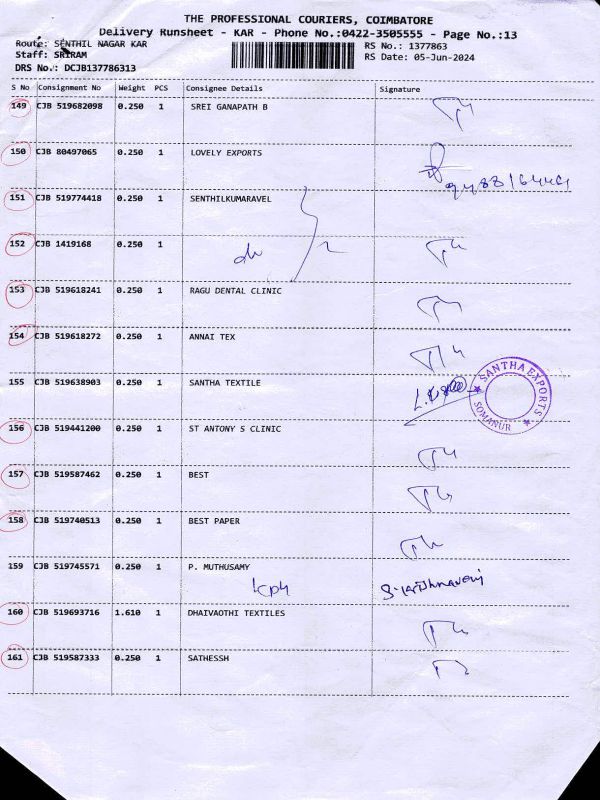 THE PROFESSIONAL COURIERS, COIMBATORE
Delivery Runsheet - KAR - Phone No.:0422-3505555 - Page No.:13
Route: SENTHIL NAGAR KAR RS No.: 1377863
Staff: SRIRAM RS Date: 05-Jun-2024
DRS No.: DCJB137786313
S No Consignment No Weight PCS Consignee Details Signature
149 CJB 519682098 0.250 1 SREI GANAPATH B
150 CJB 80497065 0.250 1 LOVELY EXPORTS
151 CJB 519774418 0.250 1 SENTHILKUMARAVEL
152 CJB 1419168 0.250 1
153 CJB 519618241 0.250 1 RAGU DENTAL CLINIC
154 CJB 519618272 0.250 1 ANNAI TEX
155 CJB 519638903 0.250 1 SANTHA TEXTILE
SANTHA EXPORTS
SOMANUR
156 CJB 519441200 0.250 1 ST ANTONY S CLINIC
157 CJB 519587462 0.250 1 BEST
158 CJB 519740513 0.250 1 BEST PAPER
159 CJB 519745571 0.250 1 P. MUTHUSAMY
160 CJB 519693716 1.610 1 DHAIVAOTHI TEXTILES
161 CJB 519587333 0.250 1 SATHESSH